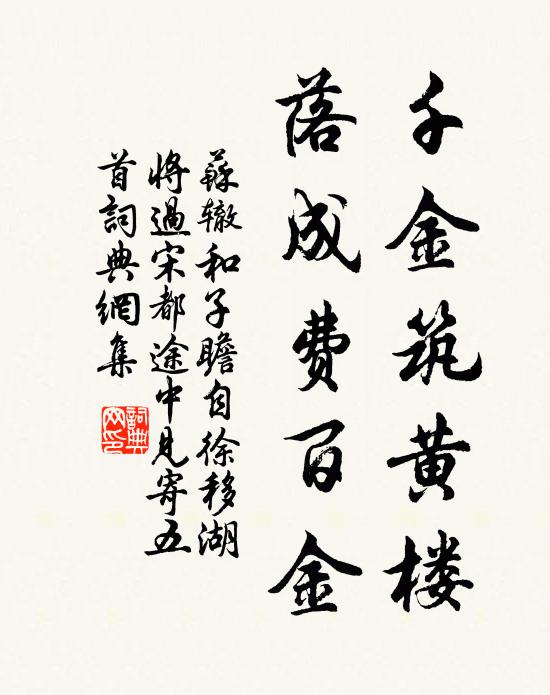 千金筑黄楼
落成费百金
蘇辙和子瞻自徐移湖
将過宋都途中見寄五
首詞典網集
詞典网印